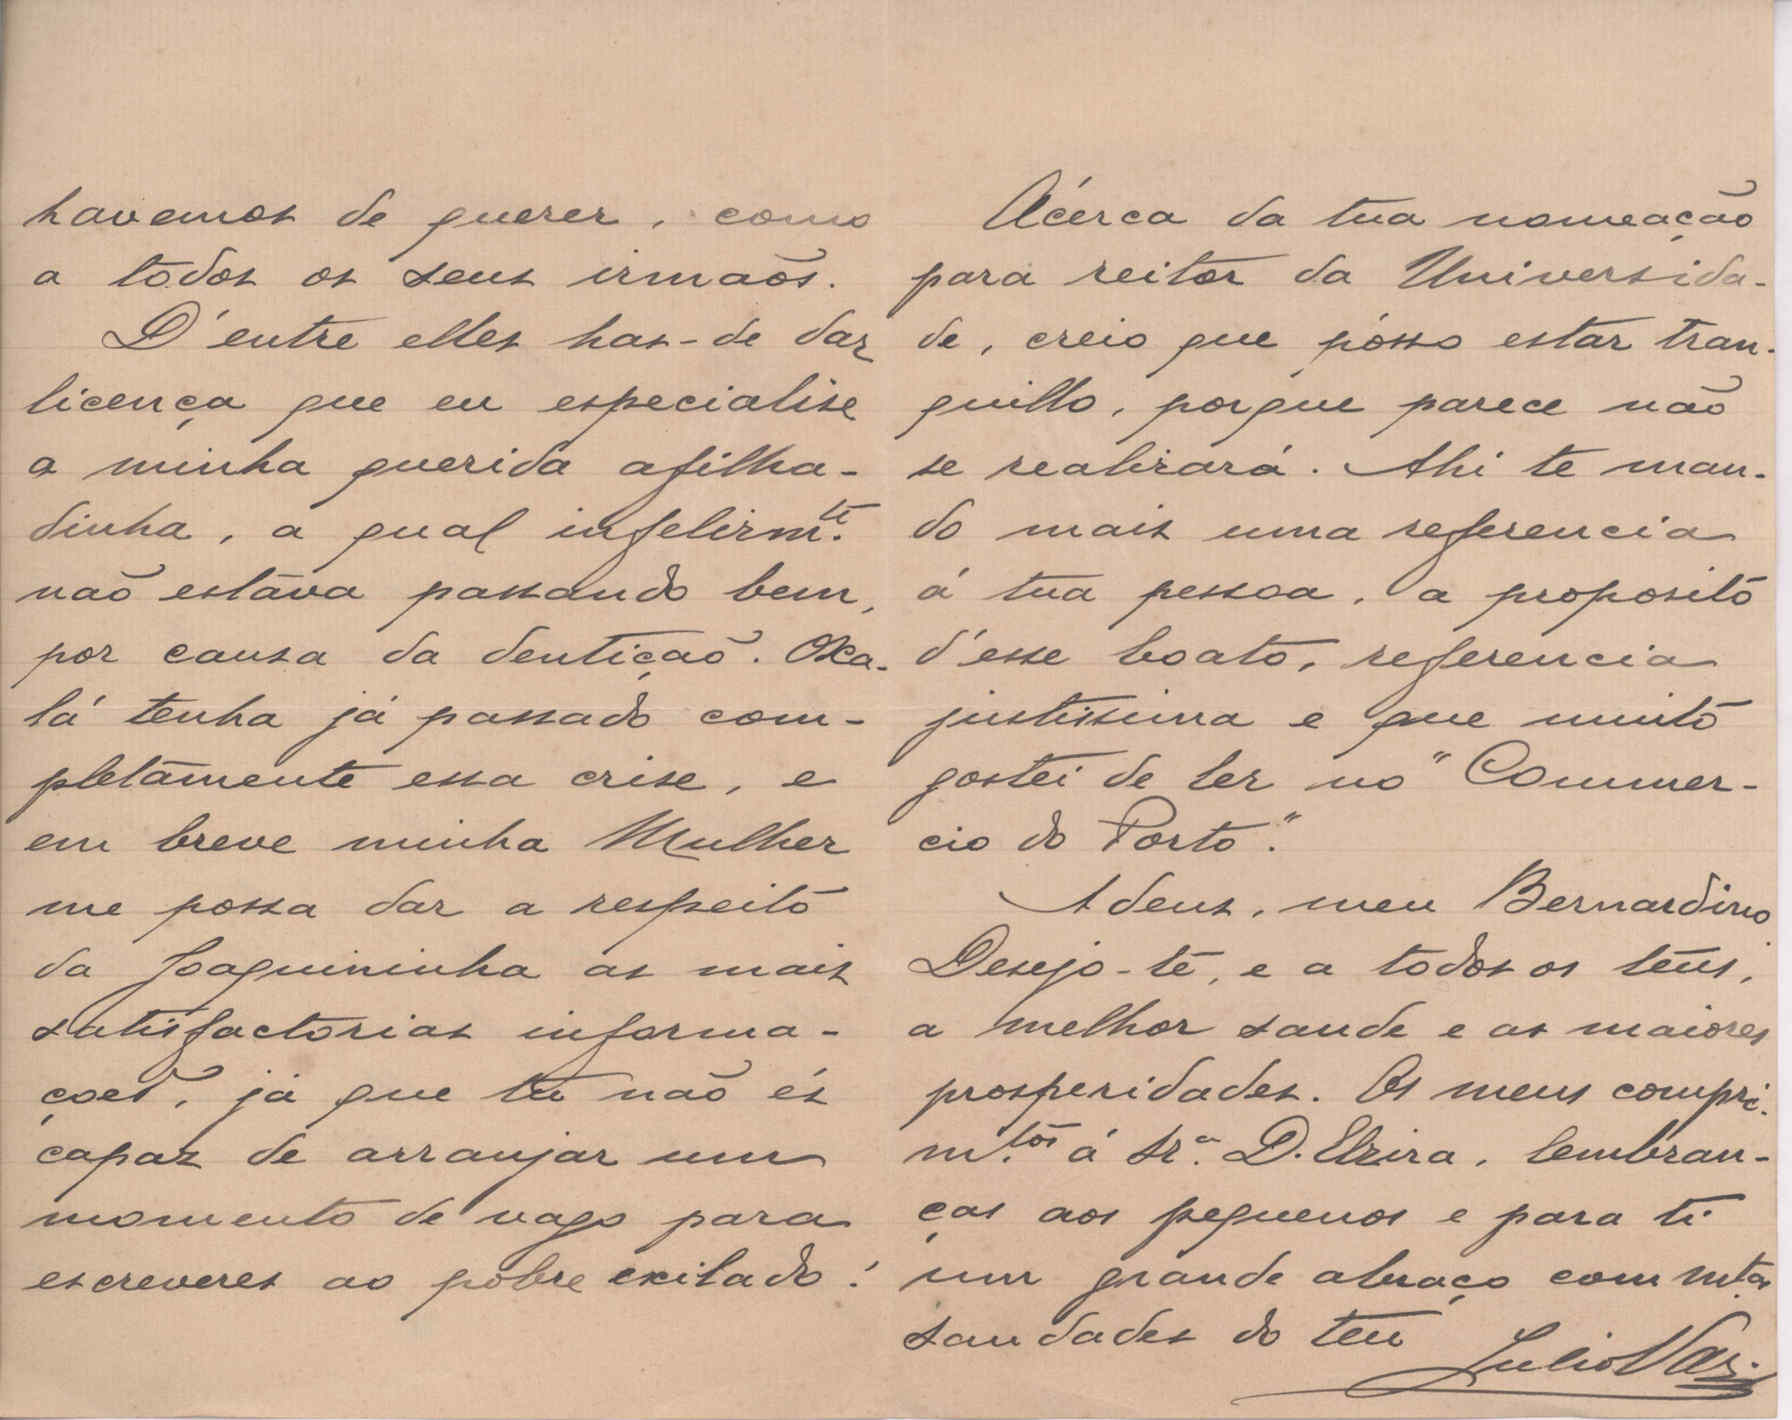 havemos de querer, como
a todos os seus irmaõs.
D'entre elles has-de dar
licença que eu especialise
a minha querida afilha-
dinha, a qual infelizm.te
naõ estava passando bem,
por causa da dentiçaõ. Oxa-
lá tenha já passado com-
pletamente essa crise, e
em breve minha Mulher
me possa dar a respeito
da Joaquininha as mais
satisfactorias informa-
çoẽs, já que tu naõ és
capaz de arranjar um
momento de vago para
escreveres ao pobre exilado!
Ácerca da tua nomeação
para reitor da Universida-
de, creio que pósso estar tran-
quillo, porque parece naõ
se realizará. Ahi te man-
do mais uma referencia
á tua pessoa, a proposito
d'esse boato, referencia
justissima e que muito
gostei de ler no "Commer-
cio do Porto".
Adeus, meu Bernardino
Desejo-te, e a todos os teus,
a melhor saude e as maiores
prosperidades. Os meus compri-
m.tos á Sr.a D. Elzira, lembran-
ças aos pequenos e para ti
um grande abraço com m.tas
saudades do teu
Julio Vaz